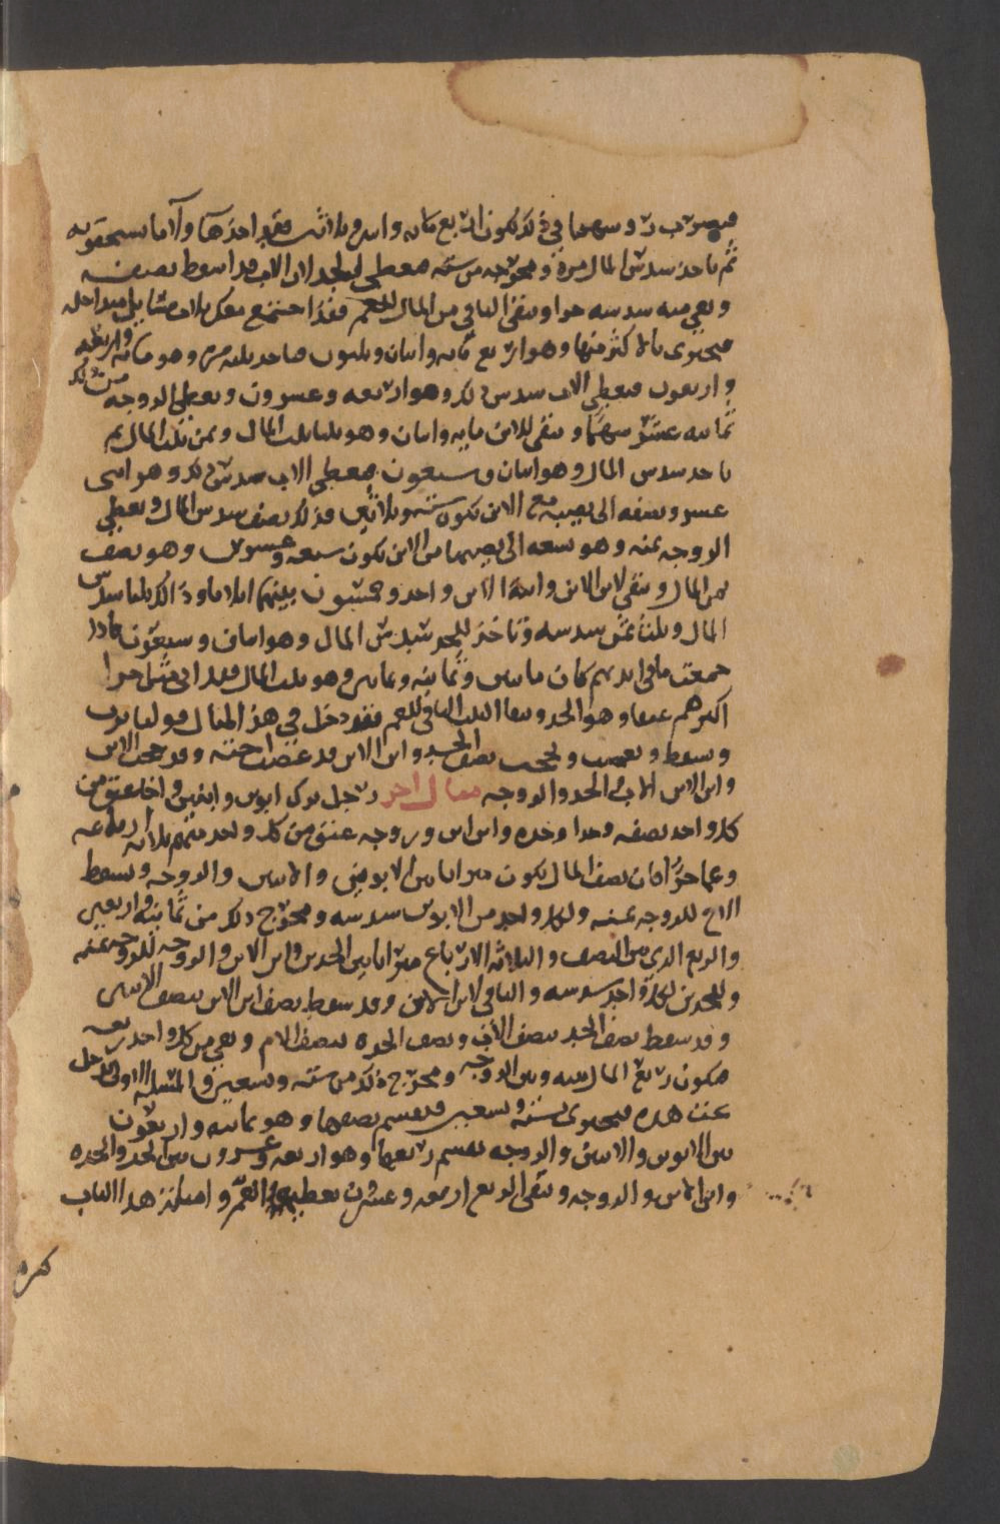 فيضرب ت و سهمها في ذلك يكون اربع مايه واسى وبلاثين فقد احذها والاما يستحقونه
ثم ناحذ سدس المال مره ومخرجه من سته فيعطى للجد لان الاب قد اسقط نصفه
وبقي منه سدسه حرا ويبقى الباقي من المال للعم فقد اجتمع معك
فيجتزى بالاكثر منها وهو اربع مايه واسان وبلىون فناحد بلثه مره وهو مايه واربعه
واربعون فيعطى الاب سدس ذلك وهو اربعه وعسرون ويعطى الزوجه من ذلك
ثمانيه عشر سهما ويبقى للابن مايه واسان وهو بلثا بلث المال وبمن بلث المال ثم
ناحد سدس المال وهو اسان وسبعون فيعطى الاب سدس ذلك وهو اسى
عسر ونصفه الى نصيبه مع الابن يكون سته وبلاثين فذلك نصف سدس المال ويعطي
الزوجه ثمنه وهو تسعه الى نصيبها من الابن يكون سبعه وعسرين وهو نصف
ثمن المال ويبقى لابن الابن واحد وخمسون بينهم وذلك بلثا سدس
المال وبلثا ثمن سدسه وناخذ للجد سدس المال وهو اسان وسبعون فاذا
جمعت ما في ايديهم كان مايتين وثمانيه وثمانين وهو بلثا المال
اكثرهم عتقا وهو الجد وبقا الثلث الباقي للعم فقد دخل في هذا المثال قولنا يرث
ويسقط ويعصب ويحجب نصف الجد وابن الابن قد عصب احته وقد حجب الابن
وابن الابن الاب والجد والزوجه مثال اخر رجل ترك ابوين وابنين واخا عتق من
كل واحد نصفه وجدا وجده وابن ابن وزوجه عتق من كل واحد منهم بلاثه ارباعه
وعما حرا فان نصف المال يكون ميراثا بين الابوين والابنين والزوجه ويسقط
الاخ للزوجه ثمنه ولكل واحد من الابوين سدسه ومخرج ذلك من ثمانيه واربعين
والربع الذي بين النصف والثلاثه الارباع ميراثا بين الجدين وابن الابن والزوجه للزوجه ثمنه
وللجدين لكل واحد سدسه والباقي لابن الابن وقد سقط نصف ابن الابن بنصف الابنين
وقد سقط نصف الجد بنصف الاب ونصف الجده بنصف الام وبقي من كل واحد ربعه
فيكون ربع المال بينه وبين الزوجه ومخرج ذلك من سته وتسعين والمسله الاولى تدخل
تحت هذه فيجتزى بسته وتسعين فيقسم نصفها وهو ثمانيه واربعون
بين الابوين والابنين والزوجه يقسم ربعها وهو اربعه وعسرون بين الجد والجده
وابن الابن والزوجه ويبقى الربع اربعه وعشرين يعطيه العم وامثلة هذا الباب
كثيره